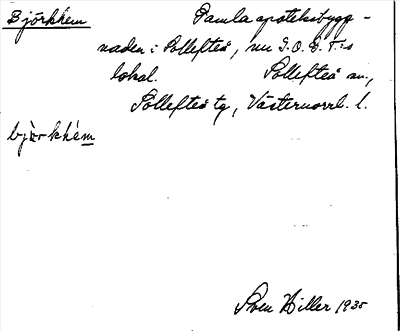 Björkhem Gamla apoteksbygg-
naden i Sollefteå, nu I.O.G.T:s
lokal. Sollefteå sn.,
Sollefteå tg, Västernorrl. l.
bjö̀rkhém
Sven Hiller 1935